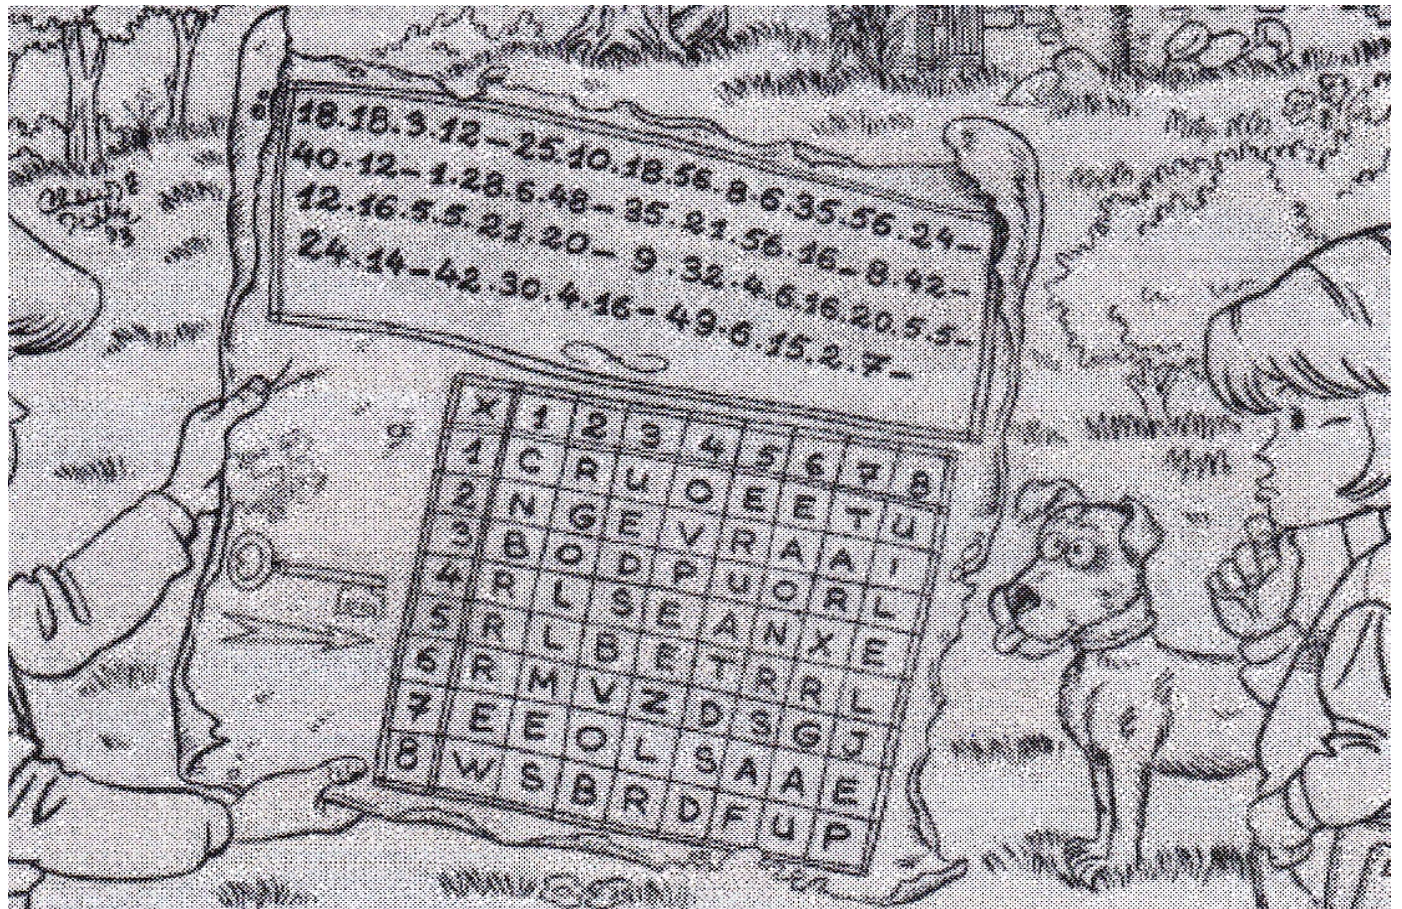 18.18.3.12-25.10.18.56.8.6.35.56.24-
40.12-1.28.6.48-35.21.56.16-8.42-
12.16.5.5.21.20-9.32.4.6.16.20.5.5-
24.14-42.30.4.16-49.6.15.2.7-
X 1 2 3 4 5 6 7 8
1 C R U O E E T U
2 N G E V R A A I
3 B O D P U O R L
4 R L S E A N X E
5 R L B E T R R L
6 R M V Z D S G J
7 E E O L S A A E
8 W S B R D F U P